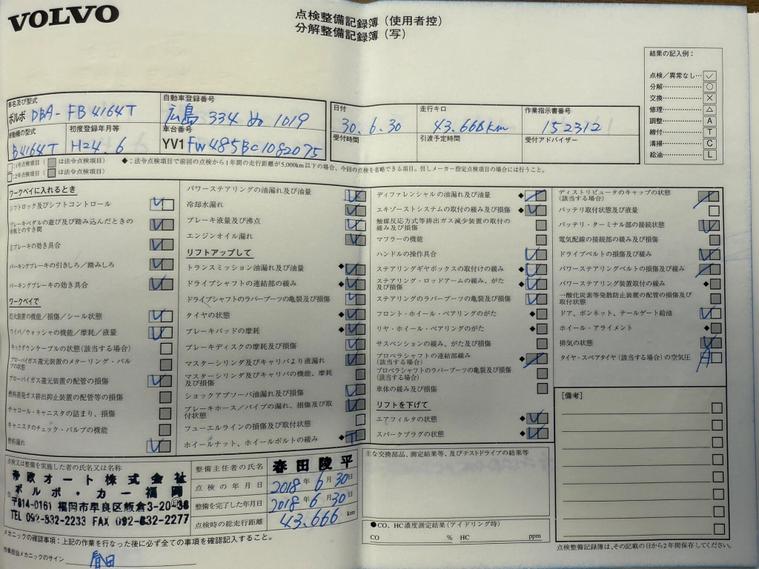 VOLVO
点検整備記録簿(使用者控)
分解整備記録簿(写)
結果の記入例:
点検/異常なし… ✓
分解 ○
交換 ×
修理 △
調整 A
締付 T
清掃 C
給油 L
車名及び型式
ボルボ DBA-FB4164T
自動車登録番号
広島 334 ぬ 1019
日付
30.6.30
走行キロ
43.666km
作業指示書番号
152312
原動機の型式
B4164T
初度登録年月等
H24.6
車台番号
YV1FW485BC1082075
受付時間
引渡予定時間
受付アドバイザー
ワークベイに入れるとき
シフトロック及びシフトコントロール
パーキングブレーキの引きしろ/踏みしろ
パーキングブレーキの効き具合
ワークベイで
ワイパ/ウォッシャの機能/摩耗/液量
キックダウンケーブルの状態(該当する場合)
ブローバイガス還元装置の配管の損傷
チャコール・キャニスタの詰まり、損傷
キャニスタのチェック・バルブの機能
燃料漏れ
パワーステアリングの油漏れ及び油量
冷却水漏れ
ブレーキ液量及び沸点
エンジンオイル漏れ
リフトアップして
トランスミッション油漏れ及び油量
ドライブシャフトの連結部の緩み
ドライブシャフトのラバーブーツの亀裂及び損傷
タイヤの状態
ブレーキパッドの摩耗
ブレーキディスクの摩耗及び損傷
マスターシリンダ及びキャリパより液漏れ
マスターシリンダ及びキャリパの機能、摩耗及び損傷
ショックアブソーバ油漏れ及び損傷
ブレーキホース/パイプの漏れ、損傷及び取付状態
フューエルラインの損傷及び取付状態
ホイールナット、ホイールボルトの緩み
ディファレンシャルの油漏れ及び油量
エキゾーストシステムの取付の緩み及び損傷
触媒反応方式等排出ガス減少装置の取付の緩み及び損傷
マフラーの機能
ハンドルの操作具合
ステアリングギヤボックスの取付けの緩み
ステアリング・ロッドアームの緩み、がた及び損傷
ステアリングのラバーブーツの亀裂及び損傷
フロント・ホイール・ベアリングのがた
リヤ・ホイール・ベアリングのがた
サスペンションの緩み、がた及び損傷
プロペラシャフトの連結部緩み(該当する場合)
プロペラシャフトのラバーブーツの亀裂及び損傷(該当する場合)
車体の緩み及び損傷
リフトを下げて
エアフィルタの状態
スパークプラグの状態
ディストリビュータのキャップの状態(該当する場合)
バッテリ取付状態及び液量
バッテリ・ターミナル部の接続状態
電気配線の接続部の緩み及び損傷
ドライブベルトの損傷及び緩み
パワーステアリングベルトの損傷及び緩み
パワーステアリング装置取付の緩み
一酸化炭素等発散防止装置の配管の損傷及び取付状態
ドア、ボンネット、テールゲート給油
ホイール・アライメント
排気の状態
タイヤ・スペアタイヤ(該当する場合)の空気圧
【備考】
点検又は整備を実施した者の氏名又は名称
帝政オート株式会社
ボルボ・カー福岡
〒814-0161 福岡市早良区飯倉3-20-38
TEL 092-832-2233 FAX 092-832-2277
整備主任者の氏名
春田陵平
点検の年月日
2018年6月30日
整備を完了した年月日
2018年6月30日
点検時の総走行距離
43.666 km
主な交換部品、測定結果等、及びテストドライブの結果等
●CO、HC濃度測定結果(アイドリング時)
CO % HC ppm
メカニックの確認事項:上記の作業を行なった後に必ず全ての事項を確認記入すること。
作業担当メカニックのサイン 春田
点検整備記録簿は、その記載の日から2年間保存してください。